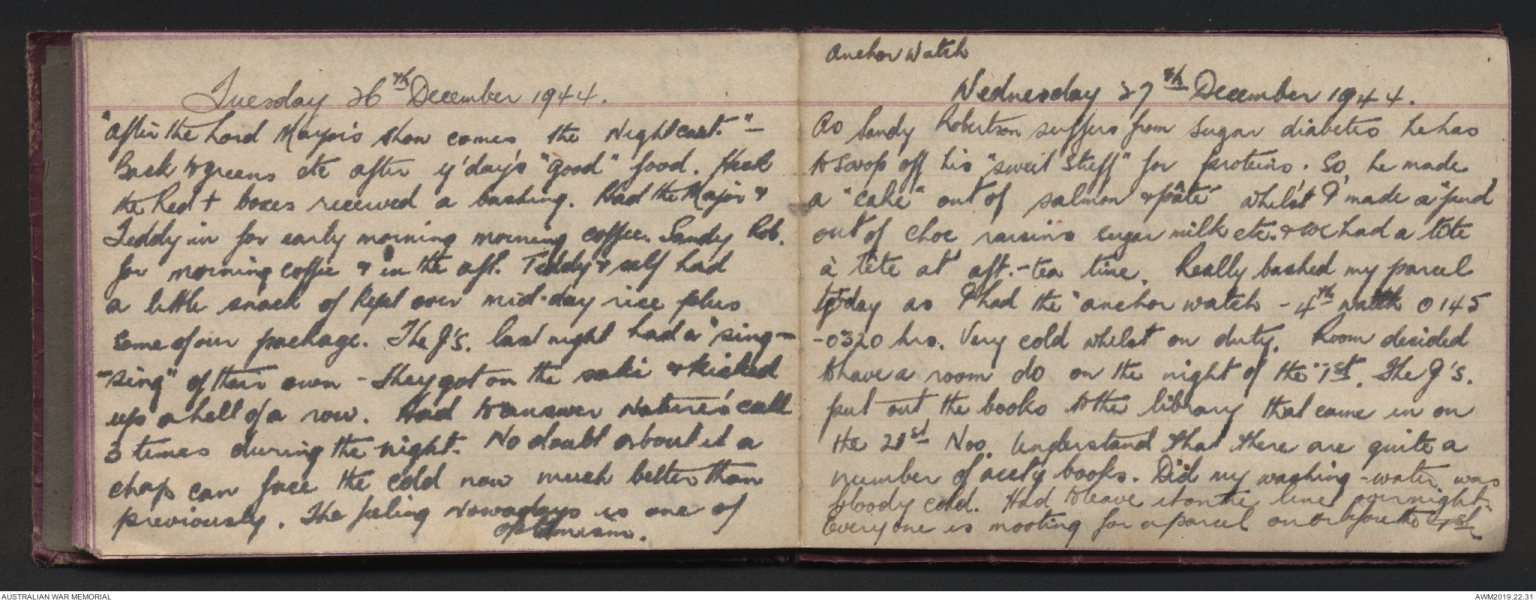 Tuesday 26th December 1944.
"After the Lord Mayor's show comes the Nightcart." -
Back to greens etc after y'day's "good" food. Heck
the Red + boxes received a bashing. Had the Major &
Teddy in for early morning morning coffee. Sandy Rob.
for morning coffee & in the aft. Teddy & self had
a little snack of kept over mid-day rice plus
some of our package. The J's. last night had a "sing-
-sing" of their own - They got on the saki & kicked
up a hell of a row. Had to answer Nature's call
3 times during the night. No doubt about it a
chap can face the cold now much better than
previously. The feeling nowadays is one of
optimism.
Anchor Watch
Wednesday 27th December 1944.
As Sandy Robertson suffers from sugar diabetes he has
to swop off his "sweet stuff" for proteins. So, he made
a "cake" out of salmon & pâté whilst I made a "pud"
out of choc raisins sugar milk etc. & we had a tête
à tête at aft.-tea time. Really bashed my parcel
today as I had the "anchor watch - 4th watch 0145
-0320 hrs. Very cold whilst on duty. Room decided
to have a room do on the night of the "1st. The J's.
put out the books to the library that came in on
the 21st Nov. Understand that there are quite a
number of acety books. Did my washing - water was
bloody cold. Had to leave it on the line overnight.
Everyone is mooting for a parcel on or before the 1st.
AUSTRALIAN WAR MEMORIAL
AWM2019.22.31